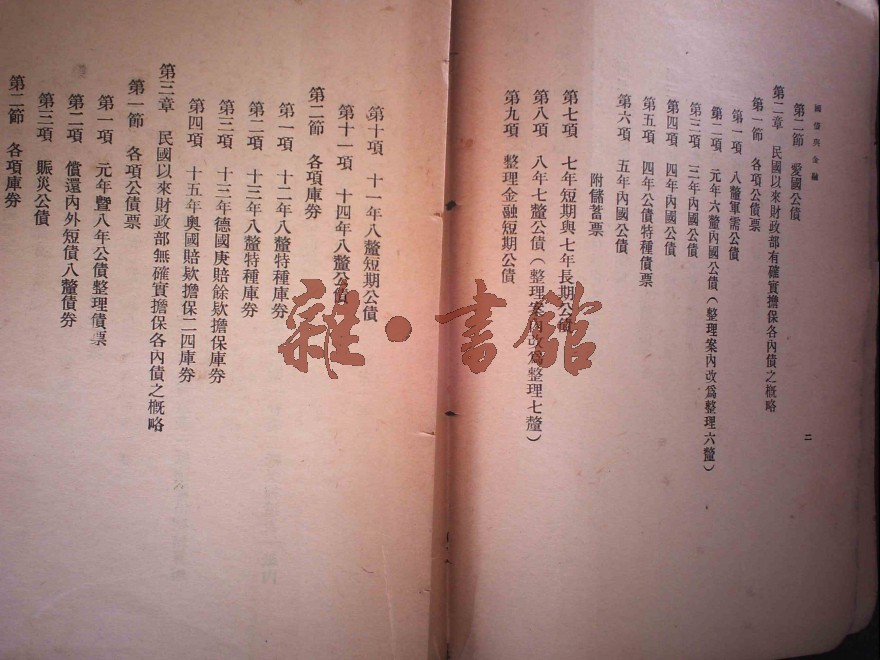 國債與金融
二
第二節　愛國公債
第二章　民國以來財政部有確實擔保各內債之概略
第一節　各項公債票
第一項　八釐軍需公債
第二項　元年六釐內國公債（整理案內改爲整理六釐）
第三項　三年內國公債
第四項　四年內國公債
第五項　四年公債特種債票
第六項　五年內國公債
附儲蓄票
第七項　七年短期與七年長期公債
第八項　八年七釐公債（整理案內改爲整理七釐）
第九項　整理金融短期公債
第十項　十一年八釐短期公債
第十一項　十四年八釐公債
第二節　各項庫券
第一項　十二年八釐特種庫券
第二項　十三年八釐特種庫券
第三項　十三年德國庚賠餘欵擔保庫券
第四項　十五年奧國賠欵擔保二四庫券
第三章　民國以來財政部無確實擔保各內債之概略
第一節　各項公債票
第一項　元年暨八年公債整理債票
第二項　償還內外短債八釐債券
第三項　賑災公債
第二節　各項庫券
雜·書館